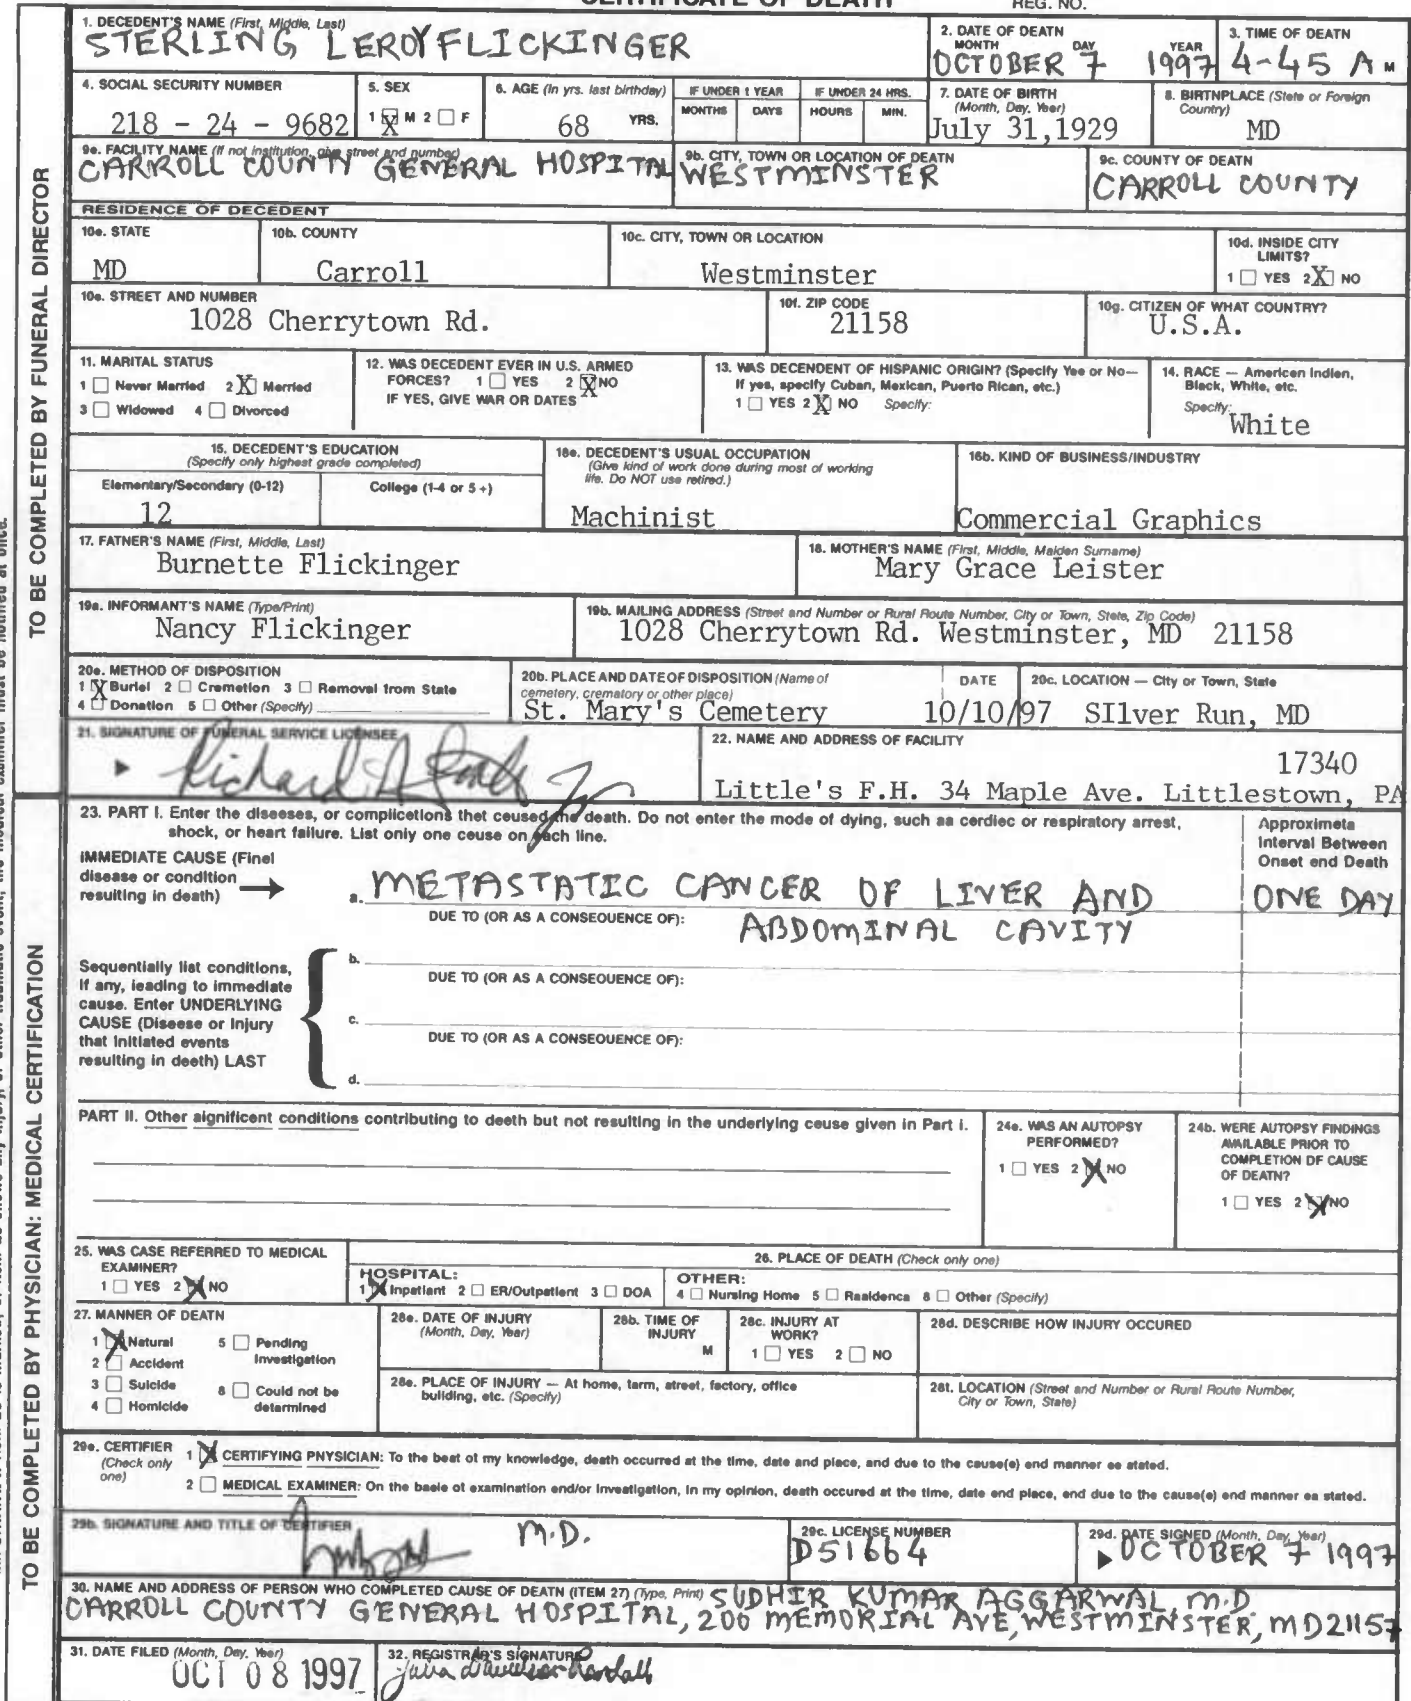 CERTIFICATE OF DEATH
REG. NO.
TO BE COMPLETED BY FUNERAL DIRECTOR
1. DECEDENT'S NAME (First, Middle, Last)
STERLING LEROY FLICKINGER
2. DATE OF DEATH
MONTH DAY YEAR
OCTOBER 7 1997
3. TIME OF DEATH
4-45 A M
4. SOCIAL SECURITY NUMBER
218 - 24 - 9682
5. SEX
1 X M 2 F
6. AGE (In yrs. last birthday)
68 YRS.
IF UNDER 1 YEAR
MONTHS DAYS
IF UNDER 24 HRS.
HOURS MIN.
7. DATE OF BIRTH
(Month, Day, Year)
July 31,1929
8. BIRTNPLACE (State or Foreign
Country)
MD
9e. FACILITY NAME (If not institution, give street and number)
CARROLL COUNTY GENERAL HOSPITAL
9b. CITY, TOWN OR LOCATION OF DEATH
WESTMINSTER
9c. COUNTY OF DEATH
CARROLL COUNTY
RESIDENCE OF DECEDENT
10e. STATE
MD
10b. COUNTY
Carroll
10c. CITY, TOWN OR LOCATION
Westminster
10d. INSIDE CITY
LIMITS?
1 YES 2 X NO
10e. STREET AND NUMBER
1028 Cherrytown Rd.
10f. ZIP CODE
21158
10g. CITIZEN OF WHAT COUNTRY?
U.S.A.
11. MARITAL STATUS
1 Never Married 2 X Merried
3 Widowed 4 Divorced
12. WAS DECEDENT EVER IN U.S. ARMED
FORCES? 1 YES 2 X NO
IF YES, GIVE WAR OR DATES
13. WAS DECENDENT OF HISPANIC ORIGIN? (Specify Yee or No—
If yes, specify Cuban, Mexican, Puerto Rican, etc.)
1 YES 2 X NO Specify:
14. RACE — American Indlen,
Bleck, White, etc.
Specify:
White
15. DECEDENT'S EDUCATION
(Specify only highest grade completed)
Elementary/Secondary (0-12)
12
College (1-4 or 5+)
16e. DECEDENT'S USUAL OCCUPATION
(Give kind of work done during most of working
life. Do NOT use retired.)
Machinist
16b. KIND OF BUSINESS/INDUSTRY
Commercial Graphics
17. FATHER'S NAME (First, Middle, Last)
Burnette Flickinger
18. MOTHER'S NAME (First, Middle, Maiden Surname)
Mary Grace Leister
19a. INFORMANT'S NAME (Type/Print)
Nancy Flickinger
19b. MAILING ADDRESS (Street end Number or Rural Route Number, City or Town, State, Zip Code)
1028 Cherrytown Rd. Westminster, MD 21158
20e. METHOD OF DISPOSITION
1 X Buriel 2 Cremetion 3 Removal from State
4 Donation 5 Other (Specify)
20b. PLACE AND DATE OF DISPOSITION (Name of
cemetery, crematory or other place)
St. Mary's Cemetery
DATE
10/10/97
20c. LOCATION — City or Town, State
SIlver Run, MD
21. SIGNATURE OF FUNERAL SERVICE LICENSEE
Richard A Jr
22. NAME AND ADDRESS OF FACILITY
17340
Little's F.H. 34 Maple Ave. Littlestown, PA
TO BE COMPLETED BY PHYSICIAN: MEDICAL CERTIFICATION
23. PART I. Enter the diseeses, or complicetions thet ceused the death. Do not enter the mode of dying, such as cerdiec or respiratory arrest,
shock, or heart failure. List only one ceuse on each line.
Approximeta
Interval Between
Onset end Death
IMMEDIATE CAUSE (Finel
disease or condition
resulting in death)
a. METASTATIC CANCER OF LIVER AND
ONE DAY
DUE TO (OR AS A CONSEQUENCE OF):
ABDOMINAL CAVITY
Sequentially list conditions,
If any, leading to immediate
cause. Enter UNDERLYING
CAUSE (Diseese or Injury
that Initiated events
resulting in deeth) LAST
b.
DUE TO (OR AS A CONSEOUENCE OF):
c.
DUE TO (OR AS A CONSEOUENCE OF):
d.
PART II. Other significent conditions contributing to deeth but not resulting in the underlying ceuse given in Part I.
24e. WAS AN AUTOPSY
PERFORMED?
1 YES 2 X NO
24b. WERE AUTOPSY FINDINGS
AVAILABLE PRIOR TO
COMPLETION DF CAUSE
OF DEATH?
1 YES 2 X NO
25. WAS CASE REFERRED TO MEDICAL
EXAMINER?
1 YES 2 X NO
26. PLACE OF DEATH (Check only one)
HOSPITAL:
1 X Inpatlant 2 ER/Outpetlent 3 DOA
OTHER:
4 Nursing Home 5 Raaldenca 6 Other (Specify)
27. MANNER OF DEATH
1 X Natural 5 Pending
Investigation
2 Accident
3 Suicide 8 Could not be
determined
4 Homicide
28e. DATE OF INJURY
(Month, Day, Year)
28b. TIME OF
INJURY
M
28c. INJURY AT
WORK?
1 YES 2 NO
28d. DESCRIBE HOW INJURY OCCURED
28e. PLACE OF INJURY — At home, tarm, atreet, factory, office
building, etc. (Specify)
28f. LOCATION (Street and Number or Rural Route Number,
City or Town, State)
29e. CERTIFIER
(Check only
one)
1 X CERTIFYING PNYSICIAN: To the beat ot my knowledge, death occurred at the time, date and place, and due to the cause(e) end manner ee atated.
2 MEDICAL EXAMINER: On the baele ot examination end/or Investigation, In my opinion, death occured at the time, date end place, end due to the cause(e) end manner ea stated.
29b. SIGNATURE AND TITLE OF CERTIFIER
M.D.
29c. LICENSE NUMBER
D51664
29d. DATE SIGNED (Month, Day, Year)
OCTOBER 7 1997
30. NAME AND ADDRESS OF PERSON WHO COMPLETED CAUSE OF DEATH (ITEM 27) (Type, Print) SUDHIR KUMAR AGGARWAL, M.D.
CARROLL COUNTY GENERAL HOSPITAL, 200 MEMORIAL AVE, WESTMINSTER, MD 21157
31. DATE FILED (Month, Day, Year)
OCT 08 1997
32. REGISTRAR'S SIGNATURE